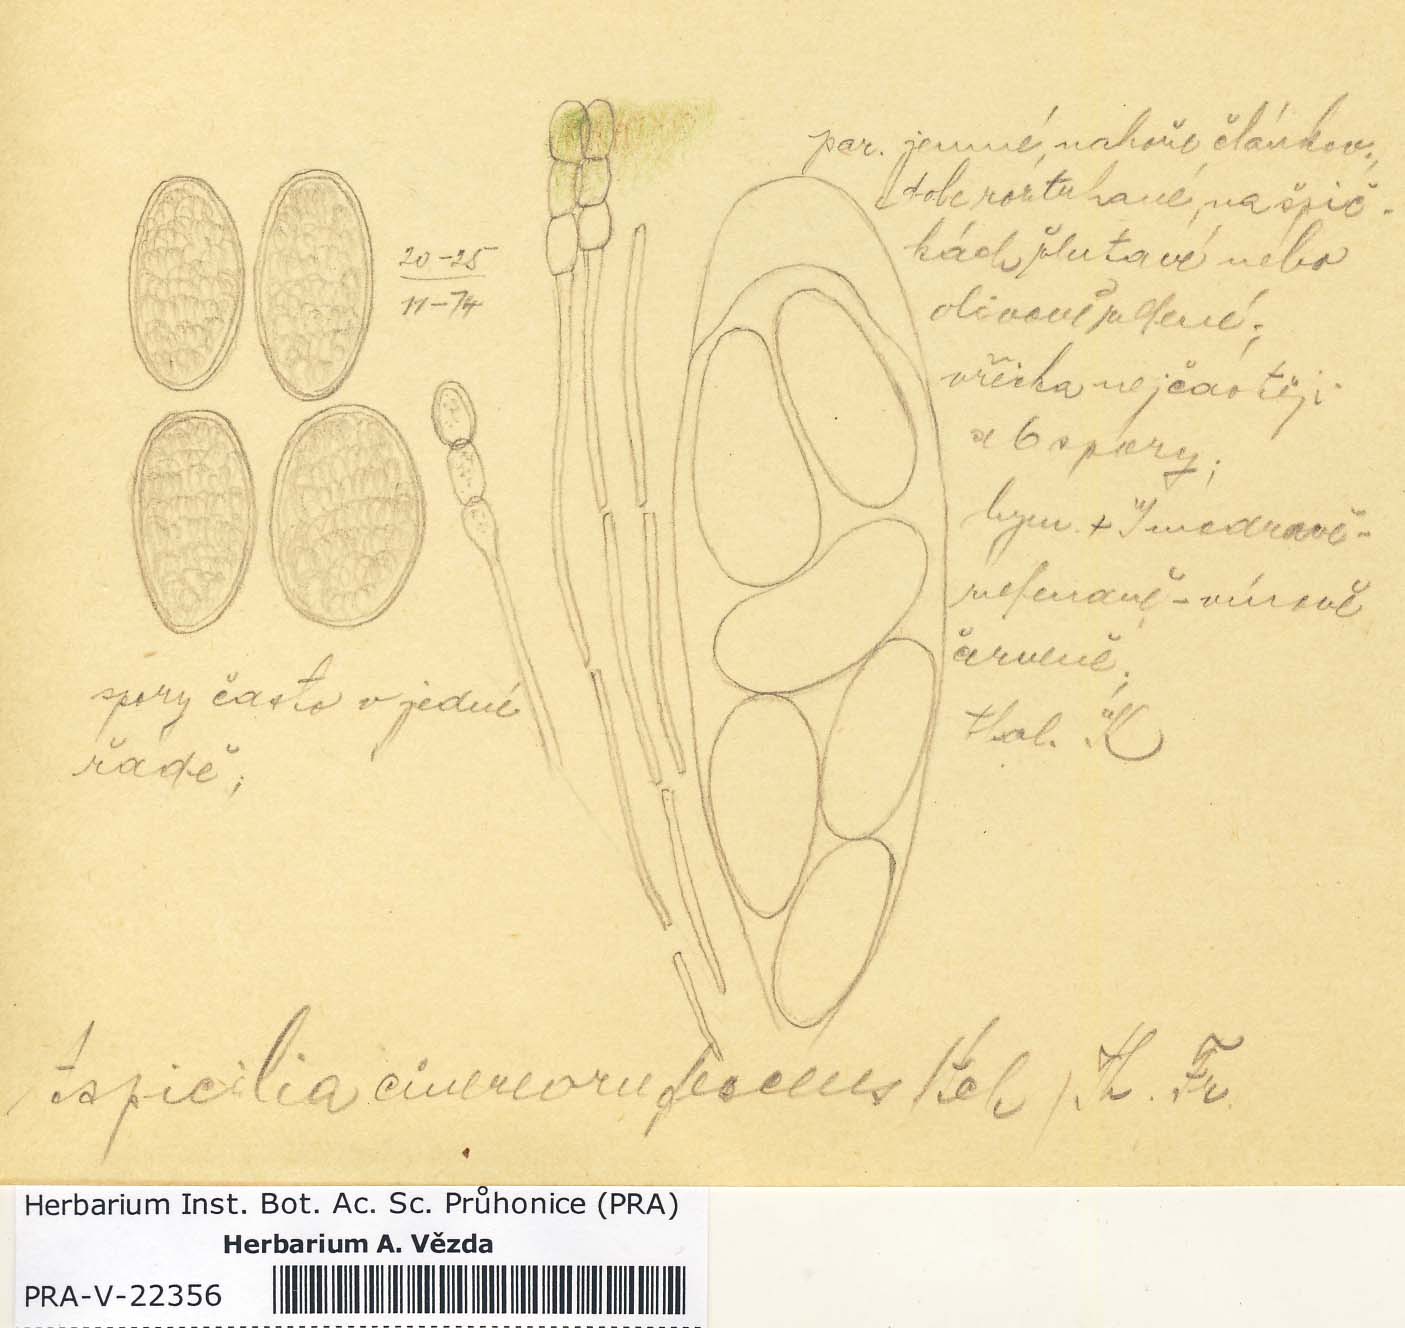 par. jemné, nahoře článkov.,
dob. roztrhané, na špič-
kách žlutavé nebo
olivově zelené;
vřecka nejčastěji
s 6 spory;
hym. + J modravě-
zelenavě - vínově
červeně;
thal. K
20-25
11-14
spory často v jedné
řadě;
Aspicilia cinereorufescens (Ach.) Th. Fr.
Herbarium Inst. Bot. Ac. Sc. Průhonice (PRA)
Herbarium A. Vězda
PRA-V-22356